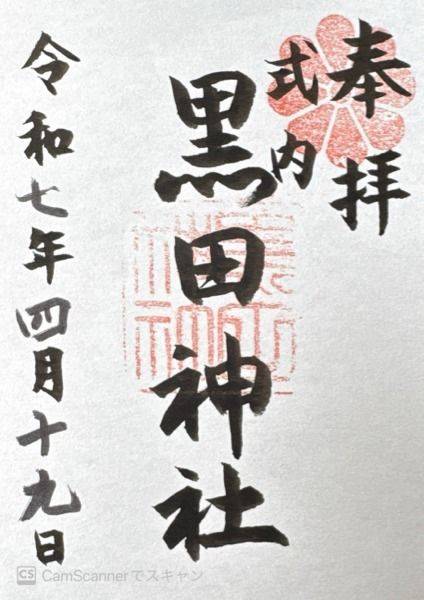 奉拝
式内
黒田神社
令和七年四月十九日
CS CamScannerでスキャン